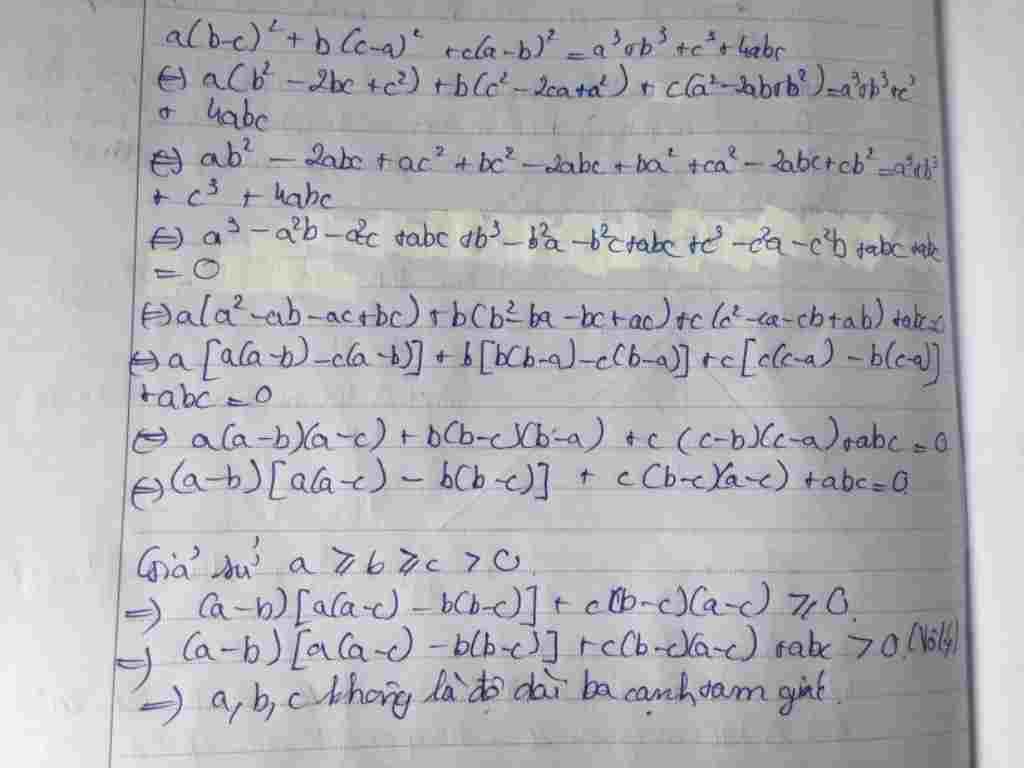 a(b-c)² + b(c-a)² + c(a-b)² = a³+b³ + c³ + 4abc
⇔ a(b² - 2bc + c²) + b(c² - 2ca+a²) + c(a²-2ab+b²)=a³+b³+c³
+ 4abc
⇔ ab² - 2abc + ac² + bc² - 2abc + ba² + ca² - 2abc + cb² = a³+b³
+ c³ + 4abc
⇔ a³ - a²b - a²c + abc + b³ - b²a - b²c + abc + c³ - c²a - c²b + abc + abc
= 0
⇔ a(a² - ab - ac + bc) + b(b² - ba - bc + ac) + c(c² - ca - cb + ab) + abc = 0
⇔ a[a(a-b) - c(a-b)] + b[b(b-a) - c(b-a)] + c[c(c-a) - b(c-a)]
+ abc = 0
⇔ a(a-b)(a-c) + b(b-c)(b-a) + c(c-b)(c-a) + abc = 0
⇔ (a-b)[a(a-c) - b(b-c)] + c(b-c)(a-c) + abc = 0
Giả sử a ⩾ b ⩾ c > 0.
⇒ (a-b)[a(a-c) - b(b-c)] + c(b-c)(a-c) ⩾ 0.
⇒ (a-b)[a(a-c) - b(b-c)] + c(b-c)(a-c) + abc > 0. (Vô lý)
⇒ a, b, c không là độ dài ba cạnh tam giác.